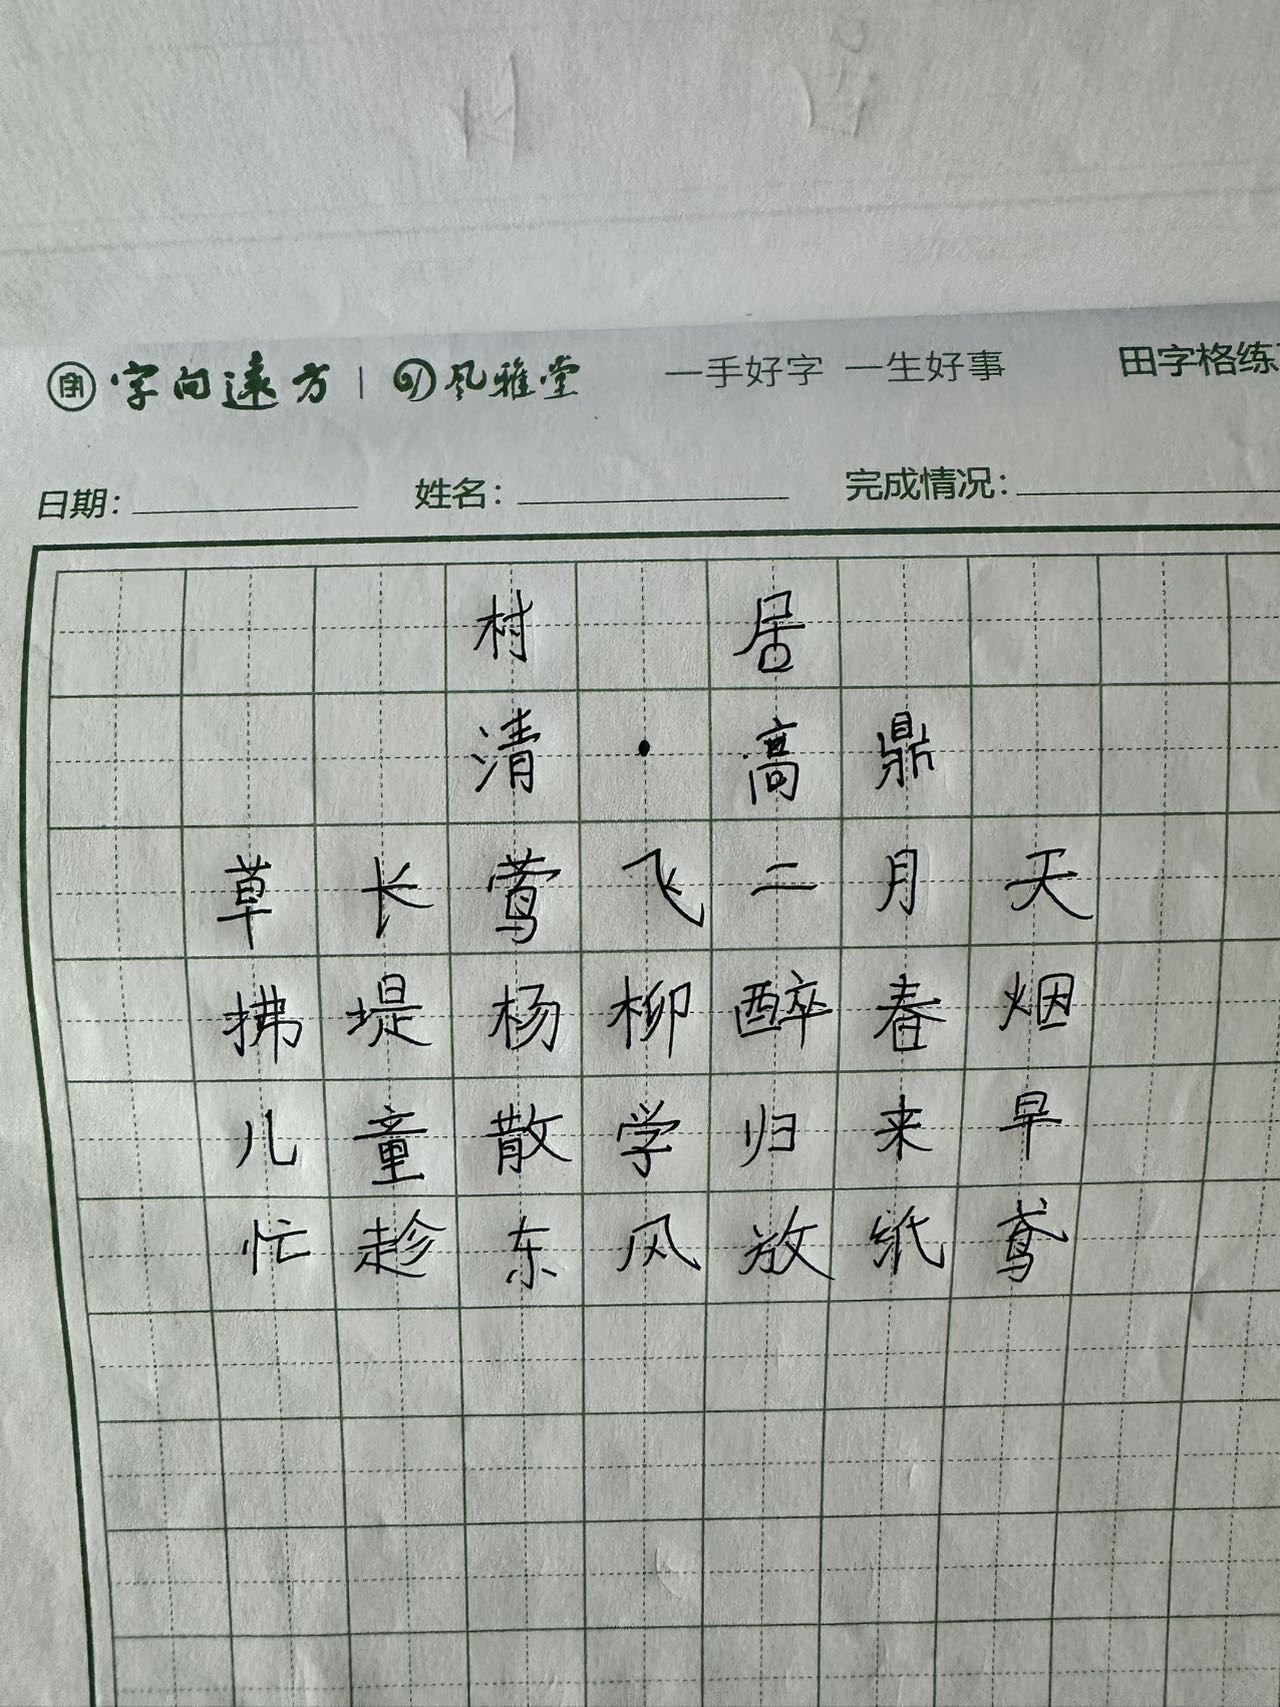 字向远方 | 风雅堂 一手好字 一生好事 田字格练
日期: 姓名: 完成情况:
村居
清·高鼎
草长莺飞二月天
拂堤杨柳醉春烟
儿童散学归来早
忙趁东风放纸鸢